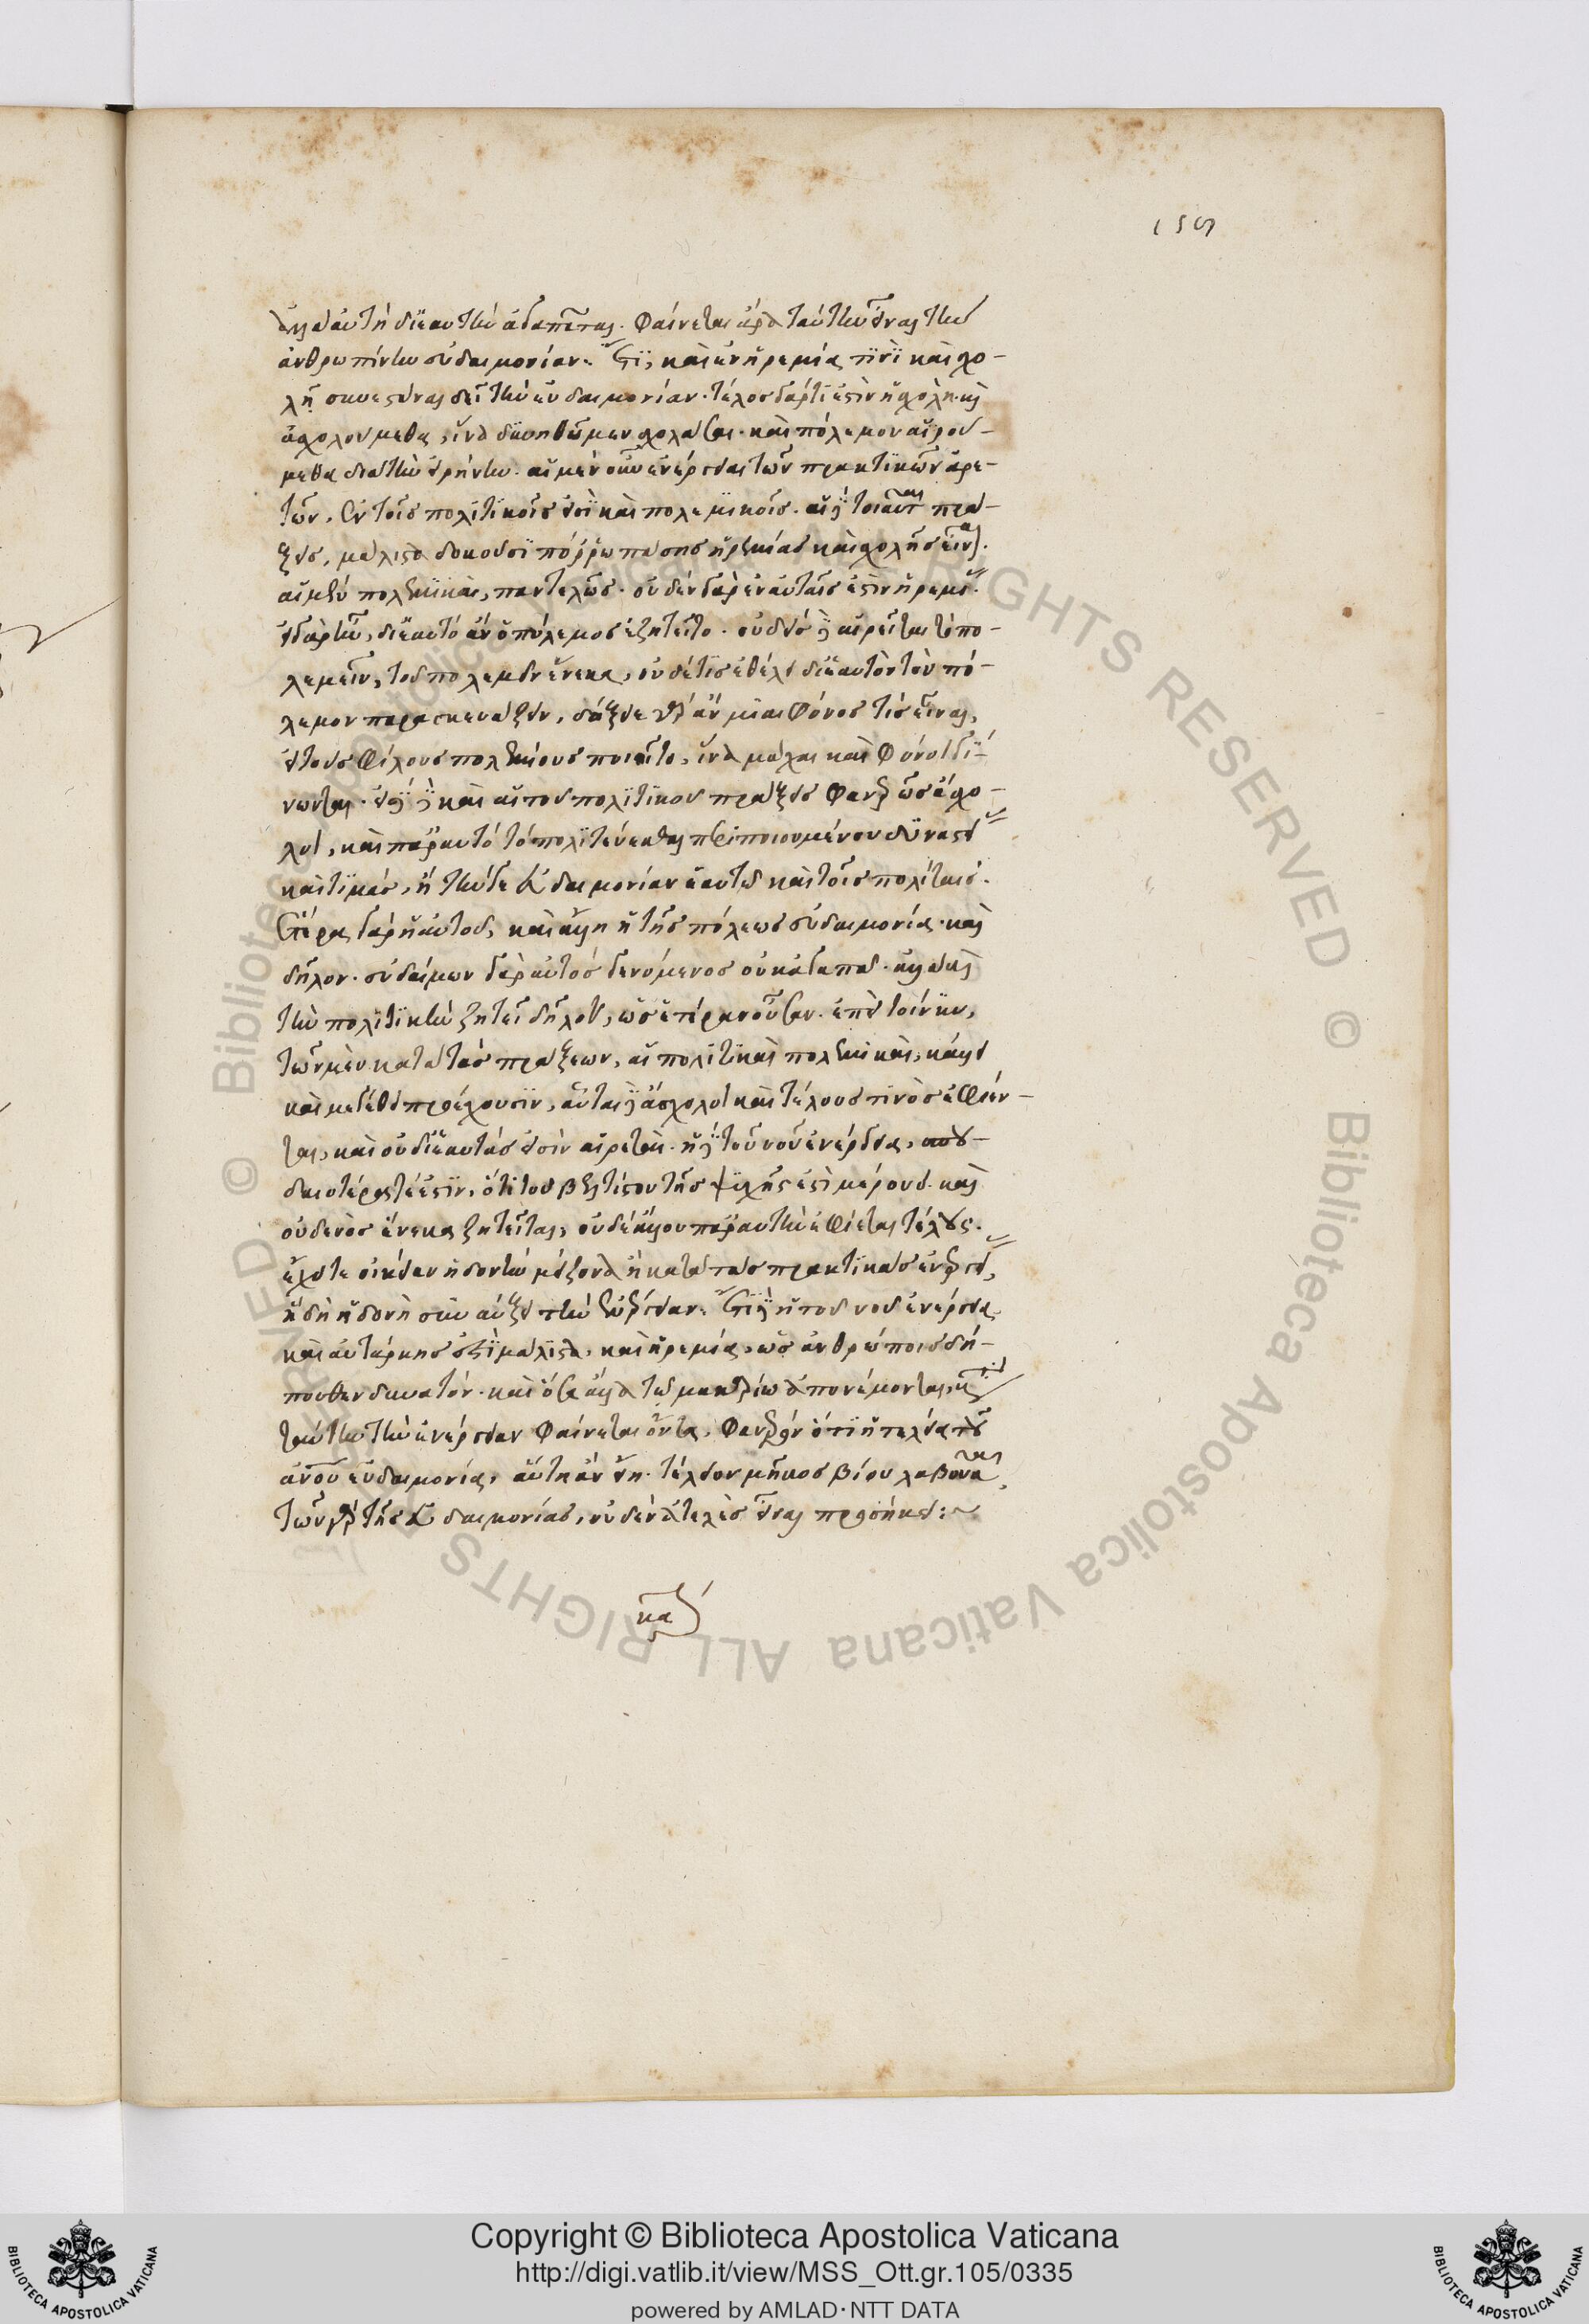 156
ἀλλ' αὐτὴ δι' ἑαυτὴν ἀγαπᾶται. φαίνεται ἄρα ταύτην εἶναι τὴν
ἀνθρωπίνην εὐδαιμονίαν. ἔτι, καὶ ἐν ἠρεμίᾳ τινὶ καὶ σχο-
λῇ συνεστάναι δεῖ τὴν εὐδαιμονίαν. τέλος γάρ τί ἐστιν ἡ σχολὴ. καὶ
ἀσχολούμεθα, ἵνα δυνηθῶμεν σχολάσαι. καὶ πόλεμον αἱρού-
μεθα διὰ τὴν εἰρήνην. αἱ μὲν οὖν ἐνέργειαι τῶν πρακτικῶν ἀρε-
τῶν, ἐν τοῖς πολιτικοῖς εἰσὶ καὶ πολεμικοῖς. αἱ δὲ τοιαῦται πρά-
ξεις, μάλιστα δοκοῦσι πόρρω πάσης ἠρεμίας καὶ σχολῆς εἶναι.
αἱ μὲν πολεμικαὶ, παντελῶς. οὐδὲν γὰρ ἐν αὐταῖς ἐστὶν ἠρεμεῖ.
εἰ γὰρ ἦν, δι' ἑαυτὸ ἂν ὁ πόλεμος ἐζητεῖτο. οὐδεὶς δὲ αἱρεῖται τὸ πο-
λεμεῖν, τοῦ πολεμεῖν ἕνεκα, οὐδέ τις ἐθέλει δι' ἑαυτὸν τὸν πό-
λεμον παρασκευάζειν, δόξειε γὰρ ἂν μιαιφόνος τίς εἶναι,
εἰ τοὺς φίλους πολεμίους ποιοῖτο, ἵνα μάχαι καὶ φόνοι γί-
νωνται. εἰσὶ δὲ καὶ αἱ τοῦ πολιτικοῦ πράξεις φανερῶς ἄσχο-
λοι, καὶ παρ' αὐτὸ τὸ πολιτεύεσθαι περιποιουμένου δυναστεί
καὶ τιμάς, ἢ τήν γε εὐδαιμονίαν ἑαυτῷ καὶ τοῖς πολίταις.
ἑτέρα γὰρ ἡ αὐτοῦ, καὶ ἄλλη ἡ τῆς πόλεως εὐδαιμονία. καὶ
δῆλον. εὐδαίμων γὰρ αὐτὸς γενόμενος οὐ καταπαύ. ἀλλὰ καὶ
τὴν πολιτικὴν ζητεῖ δηλονότι, ὡς ἑτέραν οὖσαν. ἐπεὶ τοίνυν,
τῶν μὲν κατὰ τὰς πράξεων, αἱ πολιτικαὶ πολεμικαὶ, κάλλει
καὶ μεγέθει προέχουσιν, αὗται δὲ ἄσχολοι καὶ τέλους τινὸς ἐφίεν-
ται, καὶ οὐ δι' ἑαυτάς εἰσὶν αἱρεταὶ. ἡ δὲ τοῦ νοῦ ἐνέργεια, σπου-
δαιοτέρα τέ ἐστιν, ὅτι τοῦ βελτίστου τῆς ψυχῆς ἐστὶ μέρους. καὶ
οὐδενὸς ἕνεκα ζητεῖται, οὐδὲ ἄλλου παρ' αὐτὴν ἐφίεται τέλους.
ἔχει τε οἰκείαν ἡδονὴν μείζονα ἢ κατὰ τὰς πρακτικὰς ἐνεργεί,
ἡ δὴ ἡδονὴ συναύξει τὴν ἐνέργειαν. ἔτι δὲ ἡ τοῦ νοῦ ἐνέργεια
καὶ αὐτάρκης ἐστὶ μάλιστα, καὶ ἠρεμία, ὡς ἀνθρώποις δή-
πουθεν δυνατόν. καὶ ὅσα ἄλλα τῷ μακαρίῳ ἀπονέμονται, κατὰ
ταύτην τὴν ἐνέργειαν φαίνεται ὄντα, φανερόν ὅτι ἡ τελεία τοῦ
ἀνθρώπου εὐδαιμονία, αὕτη ἂν εἴη. τέλειον μῆκος βίου λαβοῦσα,
τῶν γὰρ τῆς εὐδαιμονίας, οὐδὲν ἀτελὲς εἶναι προσήκει:~
Copyright © Biblioteca Apostolica Vaticana
http://digi.vatlib.it/view/MSS_Ott.gr.105/0335
powered by AMLAD·NTT DATA